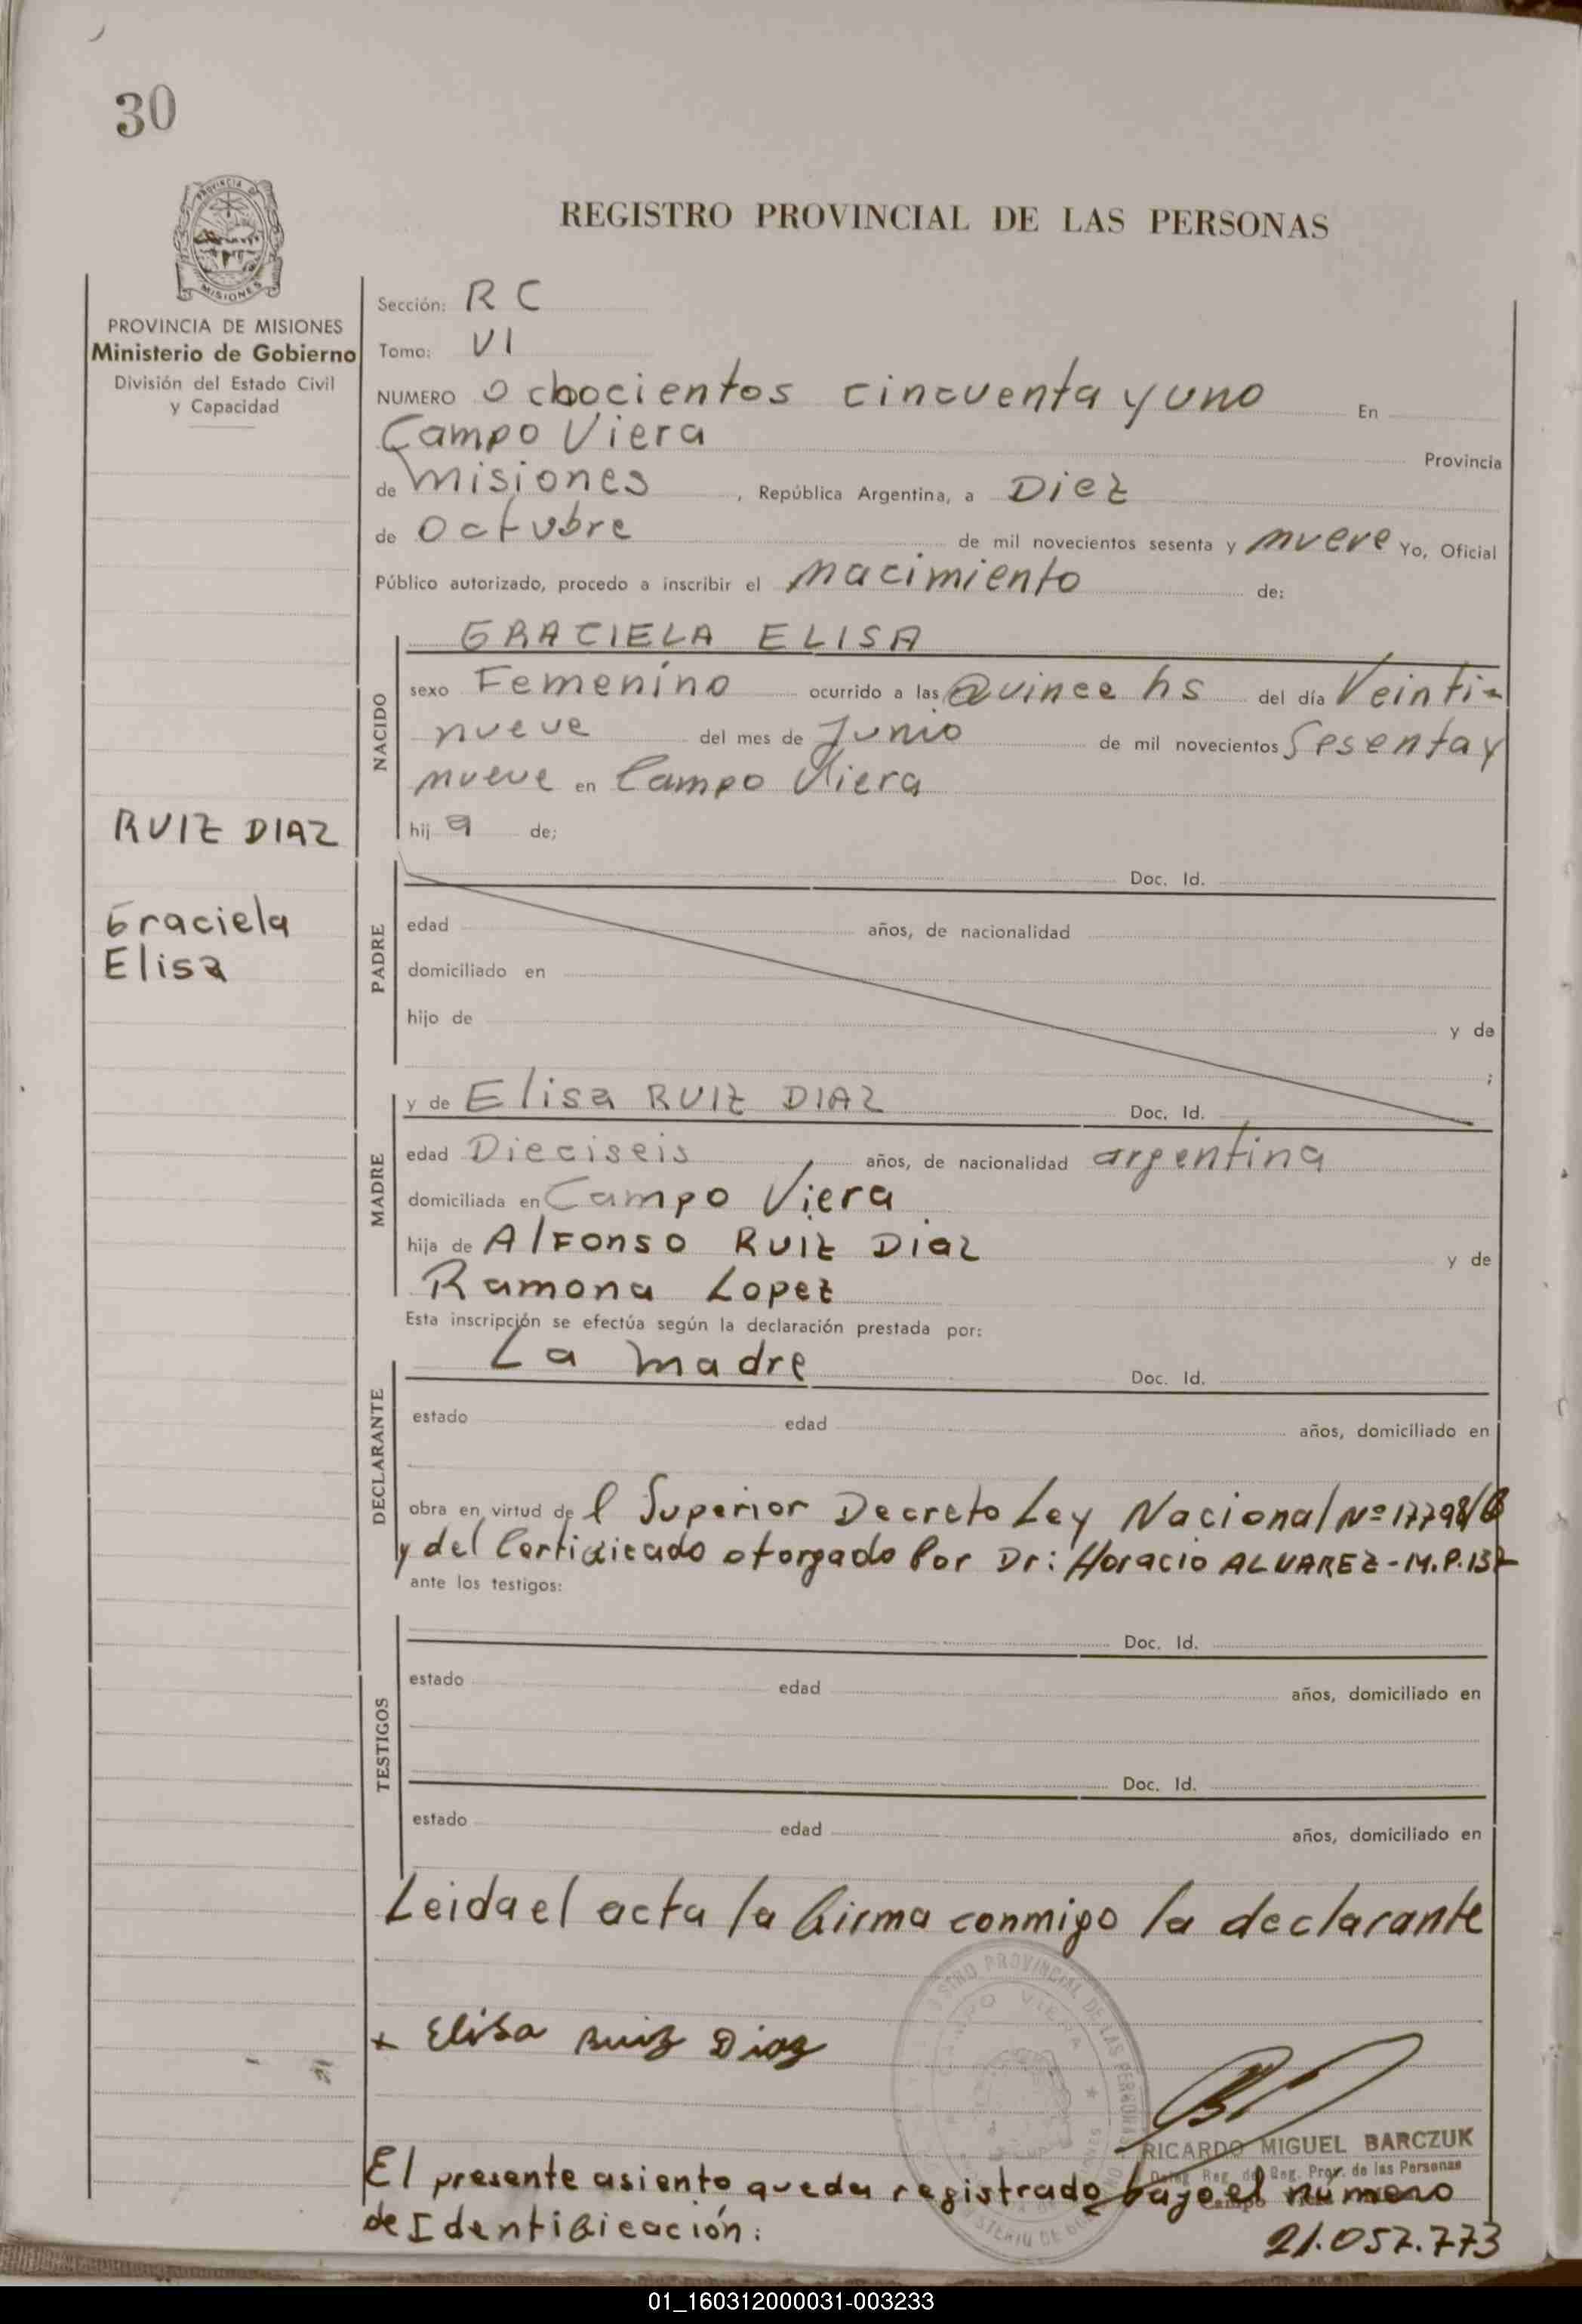 30
PROVINCIA DE
MISIONES
PROVINCIA DE MISIONES
Ministerio de Gobierno
División del Estado Civil
y Capacidad
RUIZ DIAZ
Graciela
Elisa
REGISTRO PROVINCIAL DE LAS PERSONAS
Sección: R C
Tomo: VI
NUMERO Ochocientos cincuenta y uno En
Campo Viera Provincia
de Misiones , República Argentina, a Diez
de Octubre de mil novecientos sesenta y nueve Yo, Oficial
Público autorizado, procedo a inscribir el Nacimiento de:
NACIDO
GRACIELA ELISA
sexo Femenino ocurrido a las Quince hs del día Veinti-
nueve del mes de Junio de mil novecientos Sesenta y
nueve en Campo Viera
hij a de;
PADRE
Doc. Id.
edad años, de nacionalidad
domiciliado en
hijo de y de
;
MADRE
y de Elisa RUIZ DIAZ Doc. Id.
edad Dieciseis años, de nacionalidad argentina
domiciliada en Campo Viera
hija de Alfonso Ruiz Diaz y de
Ramona Lopez
Esta inscripción se efectúa según la declaración prestada por:
DECLARANTE
La madre Doc. Id.
estado edad años, domiciliado en
obra en virtud de l Superior Decreto Ley Nacional Nº 17798/
y del Certificado otorgado Por Dr: Horacio ALVAREZ - M.P.
ante los testigos:
TESTIGOS
Doc. Id.
estado edad años, domiciliado en
Doc. Id.
estado edad años, domiciliado en
Leida el acta la firma conmigo la declarante
+ Elisa Ruiz Diaz
PROVINCIAL DE LAS PERSONAS
CAMPO VIERA
RICARDO MIGUEL BARCZUK
Reg. Prov. de las Personas
El presente asiento queda registrado bajo el número
de Identificación:
21.057.773
01_160312000031-003233